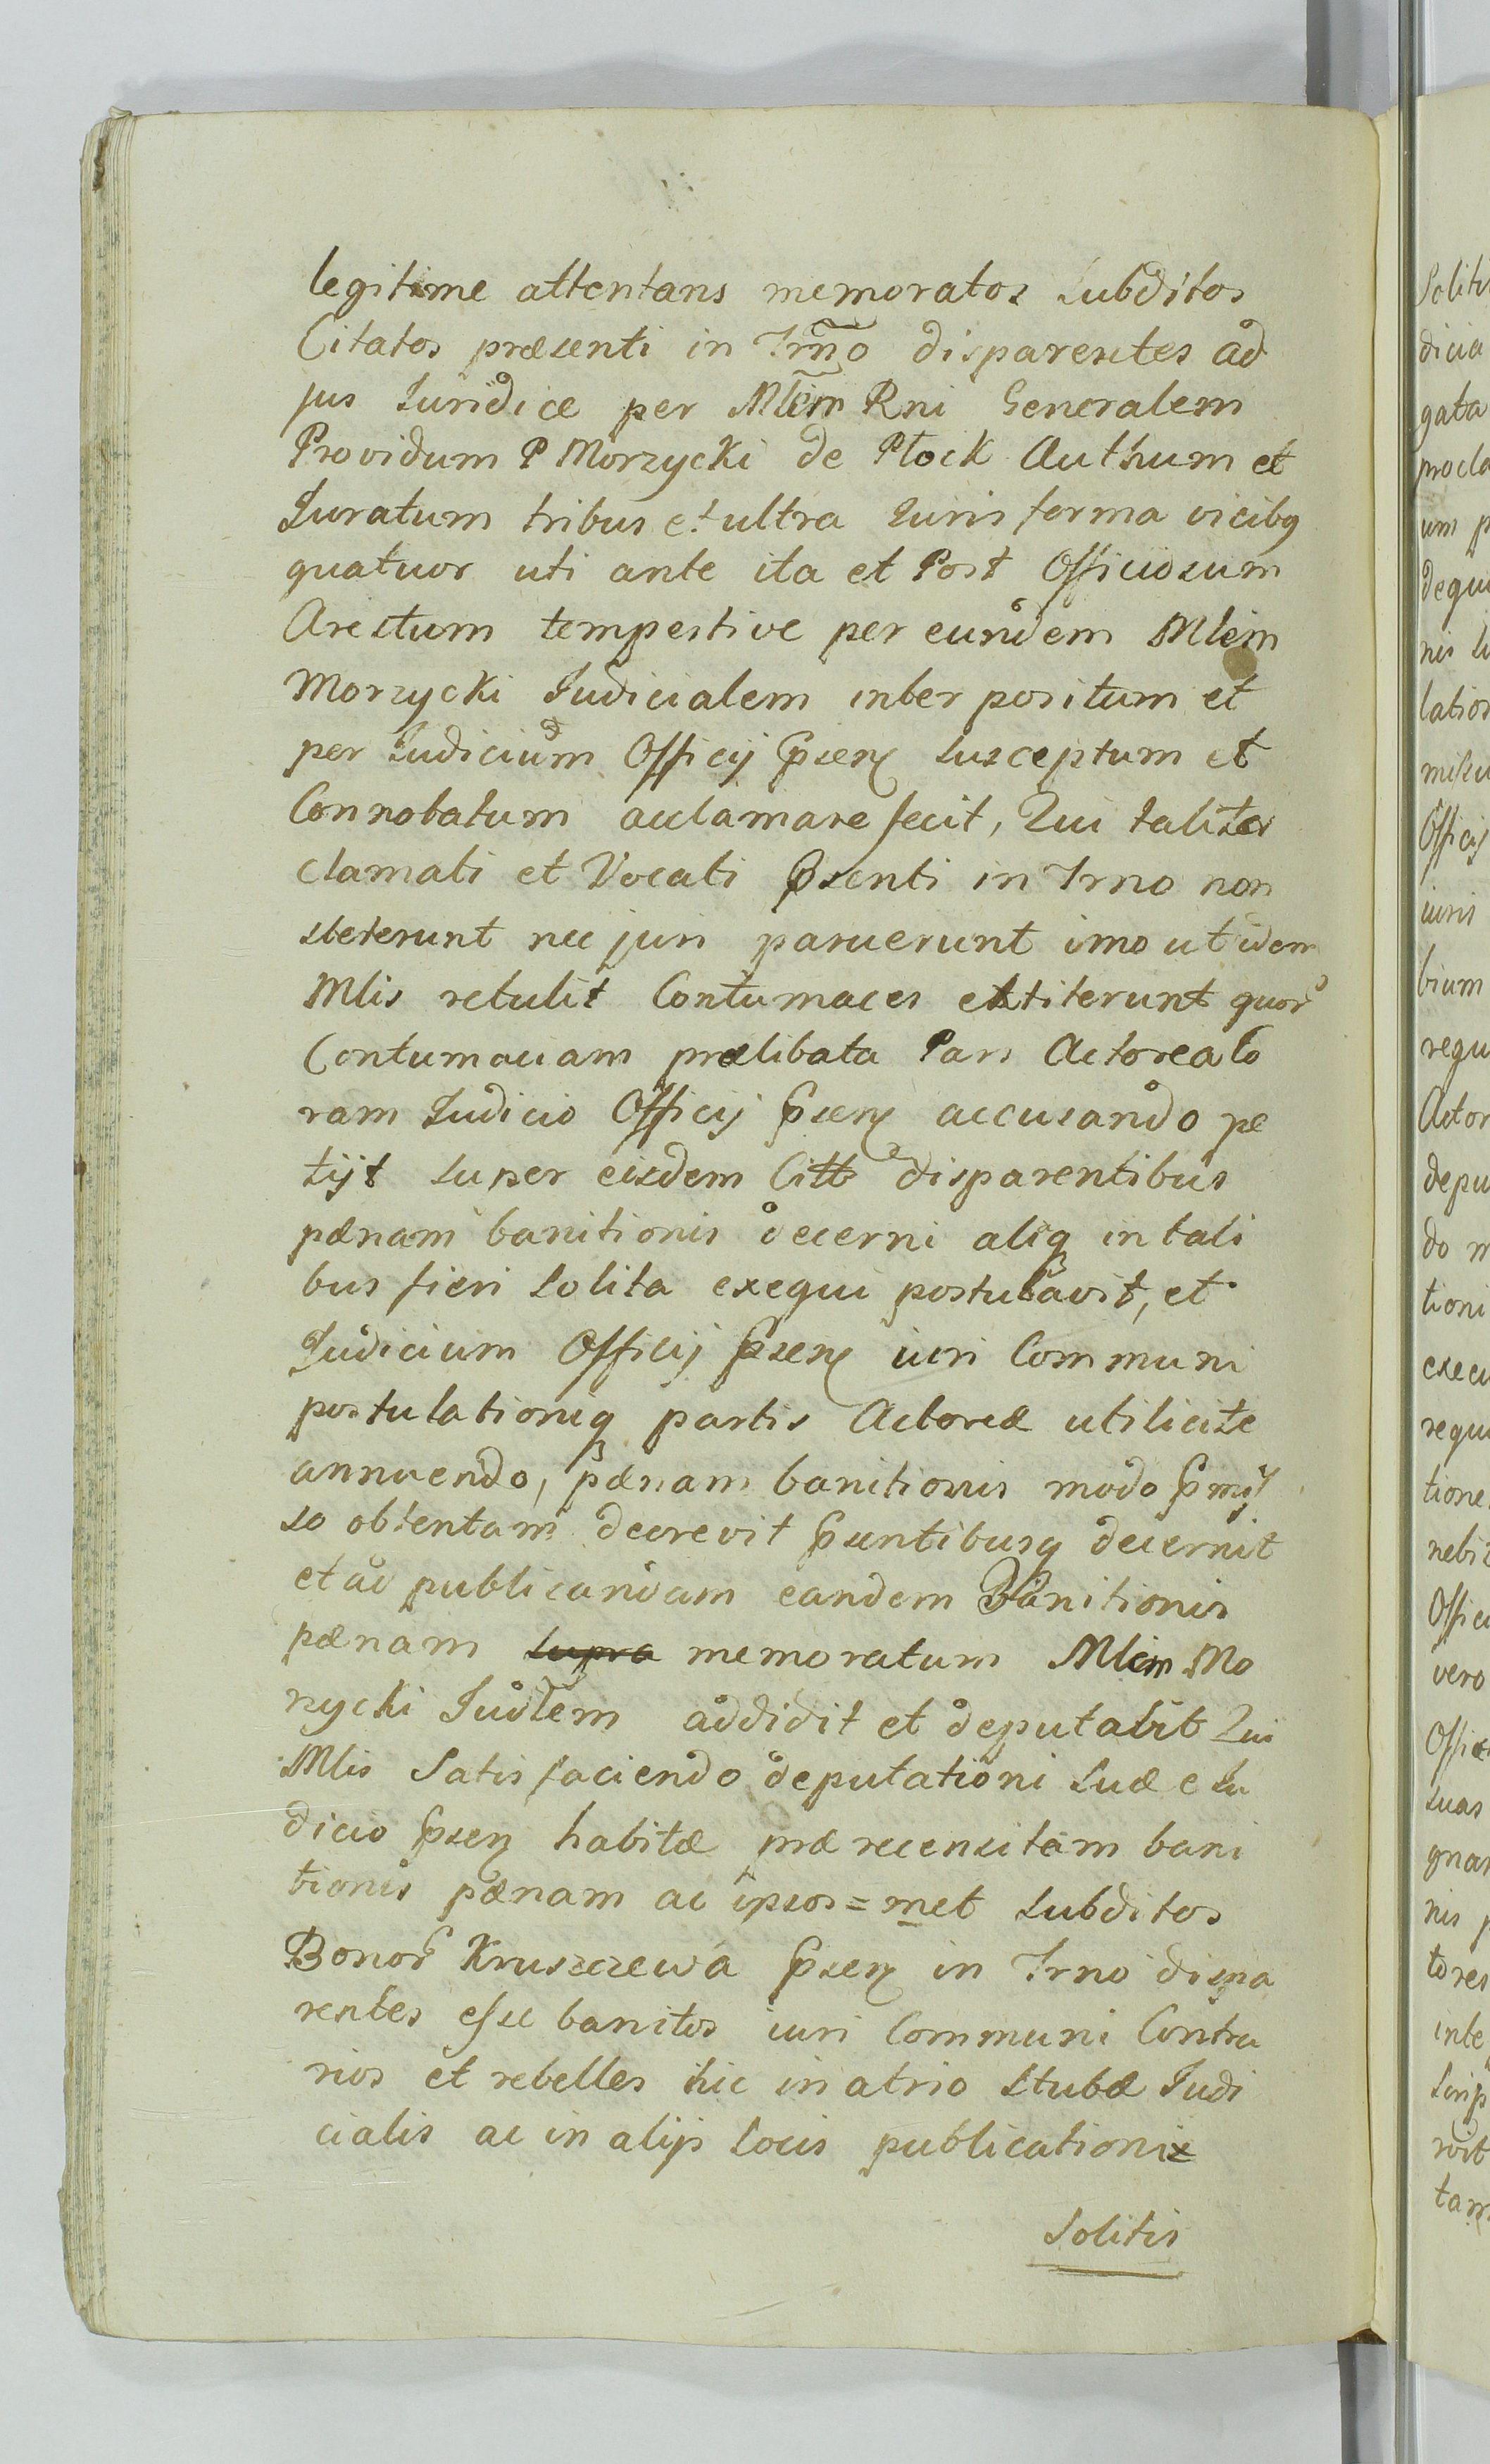 legitime attentans memoratos Subditos
Citatos præsenti in Trm̃o disparentes ad
jus Juridice per Mlem̃ Rni Generalem
Providum P Morzycki de Płock Authum et
Juratum tribus et ultra Juris forma vicibq
quatuor uti ante ita et Post Officiosum
Arestum tempestive per eundem Mlem
Morzycki Judicialem interpositum et
per Judicium Officij Psen Susceptum et
Connotatum acclamare fecit, Qui taliter
clamati et Vocati Psenti in Trno non
steterunt nec juri paruerunt imo ut idem
Mlis retulit Contumaces extiterunt quor
Contumaciam prælibata Pars Actorea Co
ram Judicio Officij Psen accusando pe
tijt super eisdem Citt disparentibus
pænam banitionis decerni aliaq in tali
bus fieri Solita exequi postulavit, et
Judicium Officij Psen iuri Communi
postulationiq partis Actoreæ utilicite
annuendo, pænam banitionis modo Pmis
so obtentam decrevit Psentibusq decernit
et ad publicandam eandem Banitionis
pænam supra memoratum Mlem Mo
rzycki Judlem addidit et deputavit Qui
Mlis Satisfaciendo deputationi Suæ e Ju
dicio Psen habitæ præ recensitam bani
tionis pænam ac ipsos=met Subditos
Bonor Kruszczewa Psen in Trno dispa
rentes esse banitos iuri Communi Contra
rios et rebelles hic in atrio Stubæ Judi
cialis ac in alijs Locis publicationis
Solitis